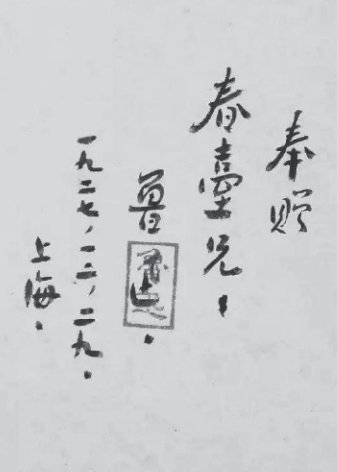 奉贈
春臺兄：
魯迅。
一九二七，一二，二九。
上海。